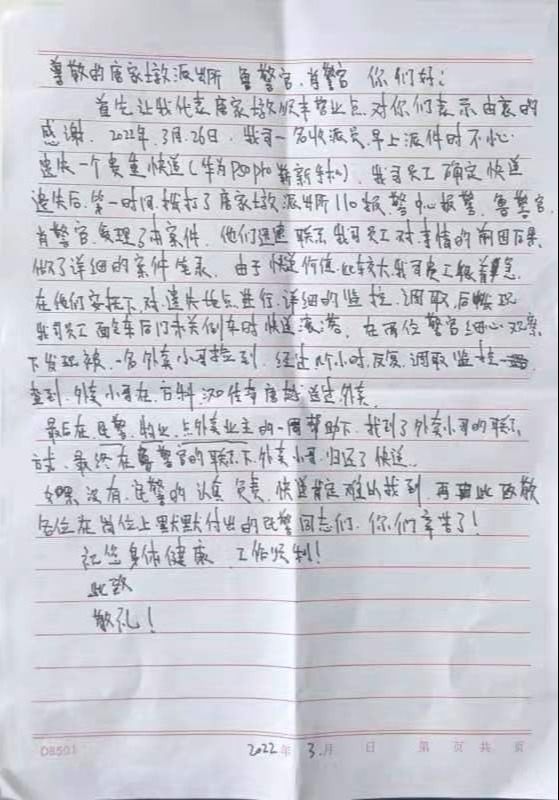 尊敬的唐家墩派出所 鲁警官、肖警官 你们好:
首先让我代表唐家墩顺丰营业点.对你们表示由衷的
感谢. 2022年.3月.26日. 我司一名收派员.早上派件时不小心
遗失一个贵重快递(华为P50pro崭新手机). 我司员工确定快递
遗失后.第一时间.拨打了唐家墩派出所110报警中心报警.鲁警官.
肖警官.受理了本案件. 他们迅速联系我司员工对事情的前因后果.
做了详细的案件笔录. 由于快递价值比较大.我司员工很着急.
在他们安抚下.对.遗失地点.进行.详细的监控.调取.后发现
我司员工面包车后门未关倒车时快递滑落. 在两位警官细心观察
下发现被.一名外卖小哥捡到. 经过几个小时.反复.调取监控
查到.外卖小哥在.万科 送外卖.
最后在.民警.物业.点外卖业主的一同帮助下.找到了外卖小哥的联系
方式.最终在鲁警官的联系下.外卖小哥.归还了快递.
如果没有.民警的认真负责.快递肯定难以找到.再次此致敬
各位在岗位上默默付出的民警同志们.你们辛苦了!
祝您身体健康 工作顺利!
此致
敬礼!
D8501 2022年 3.月 日 第 页 共 页